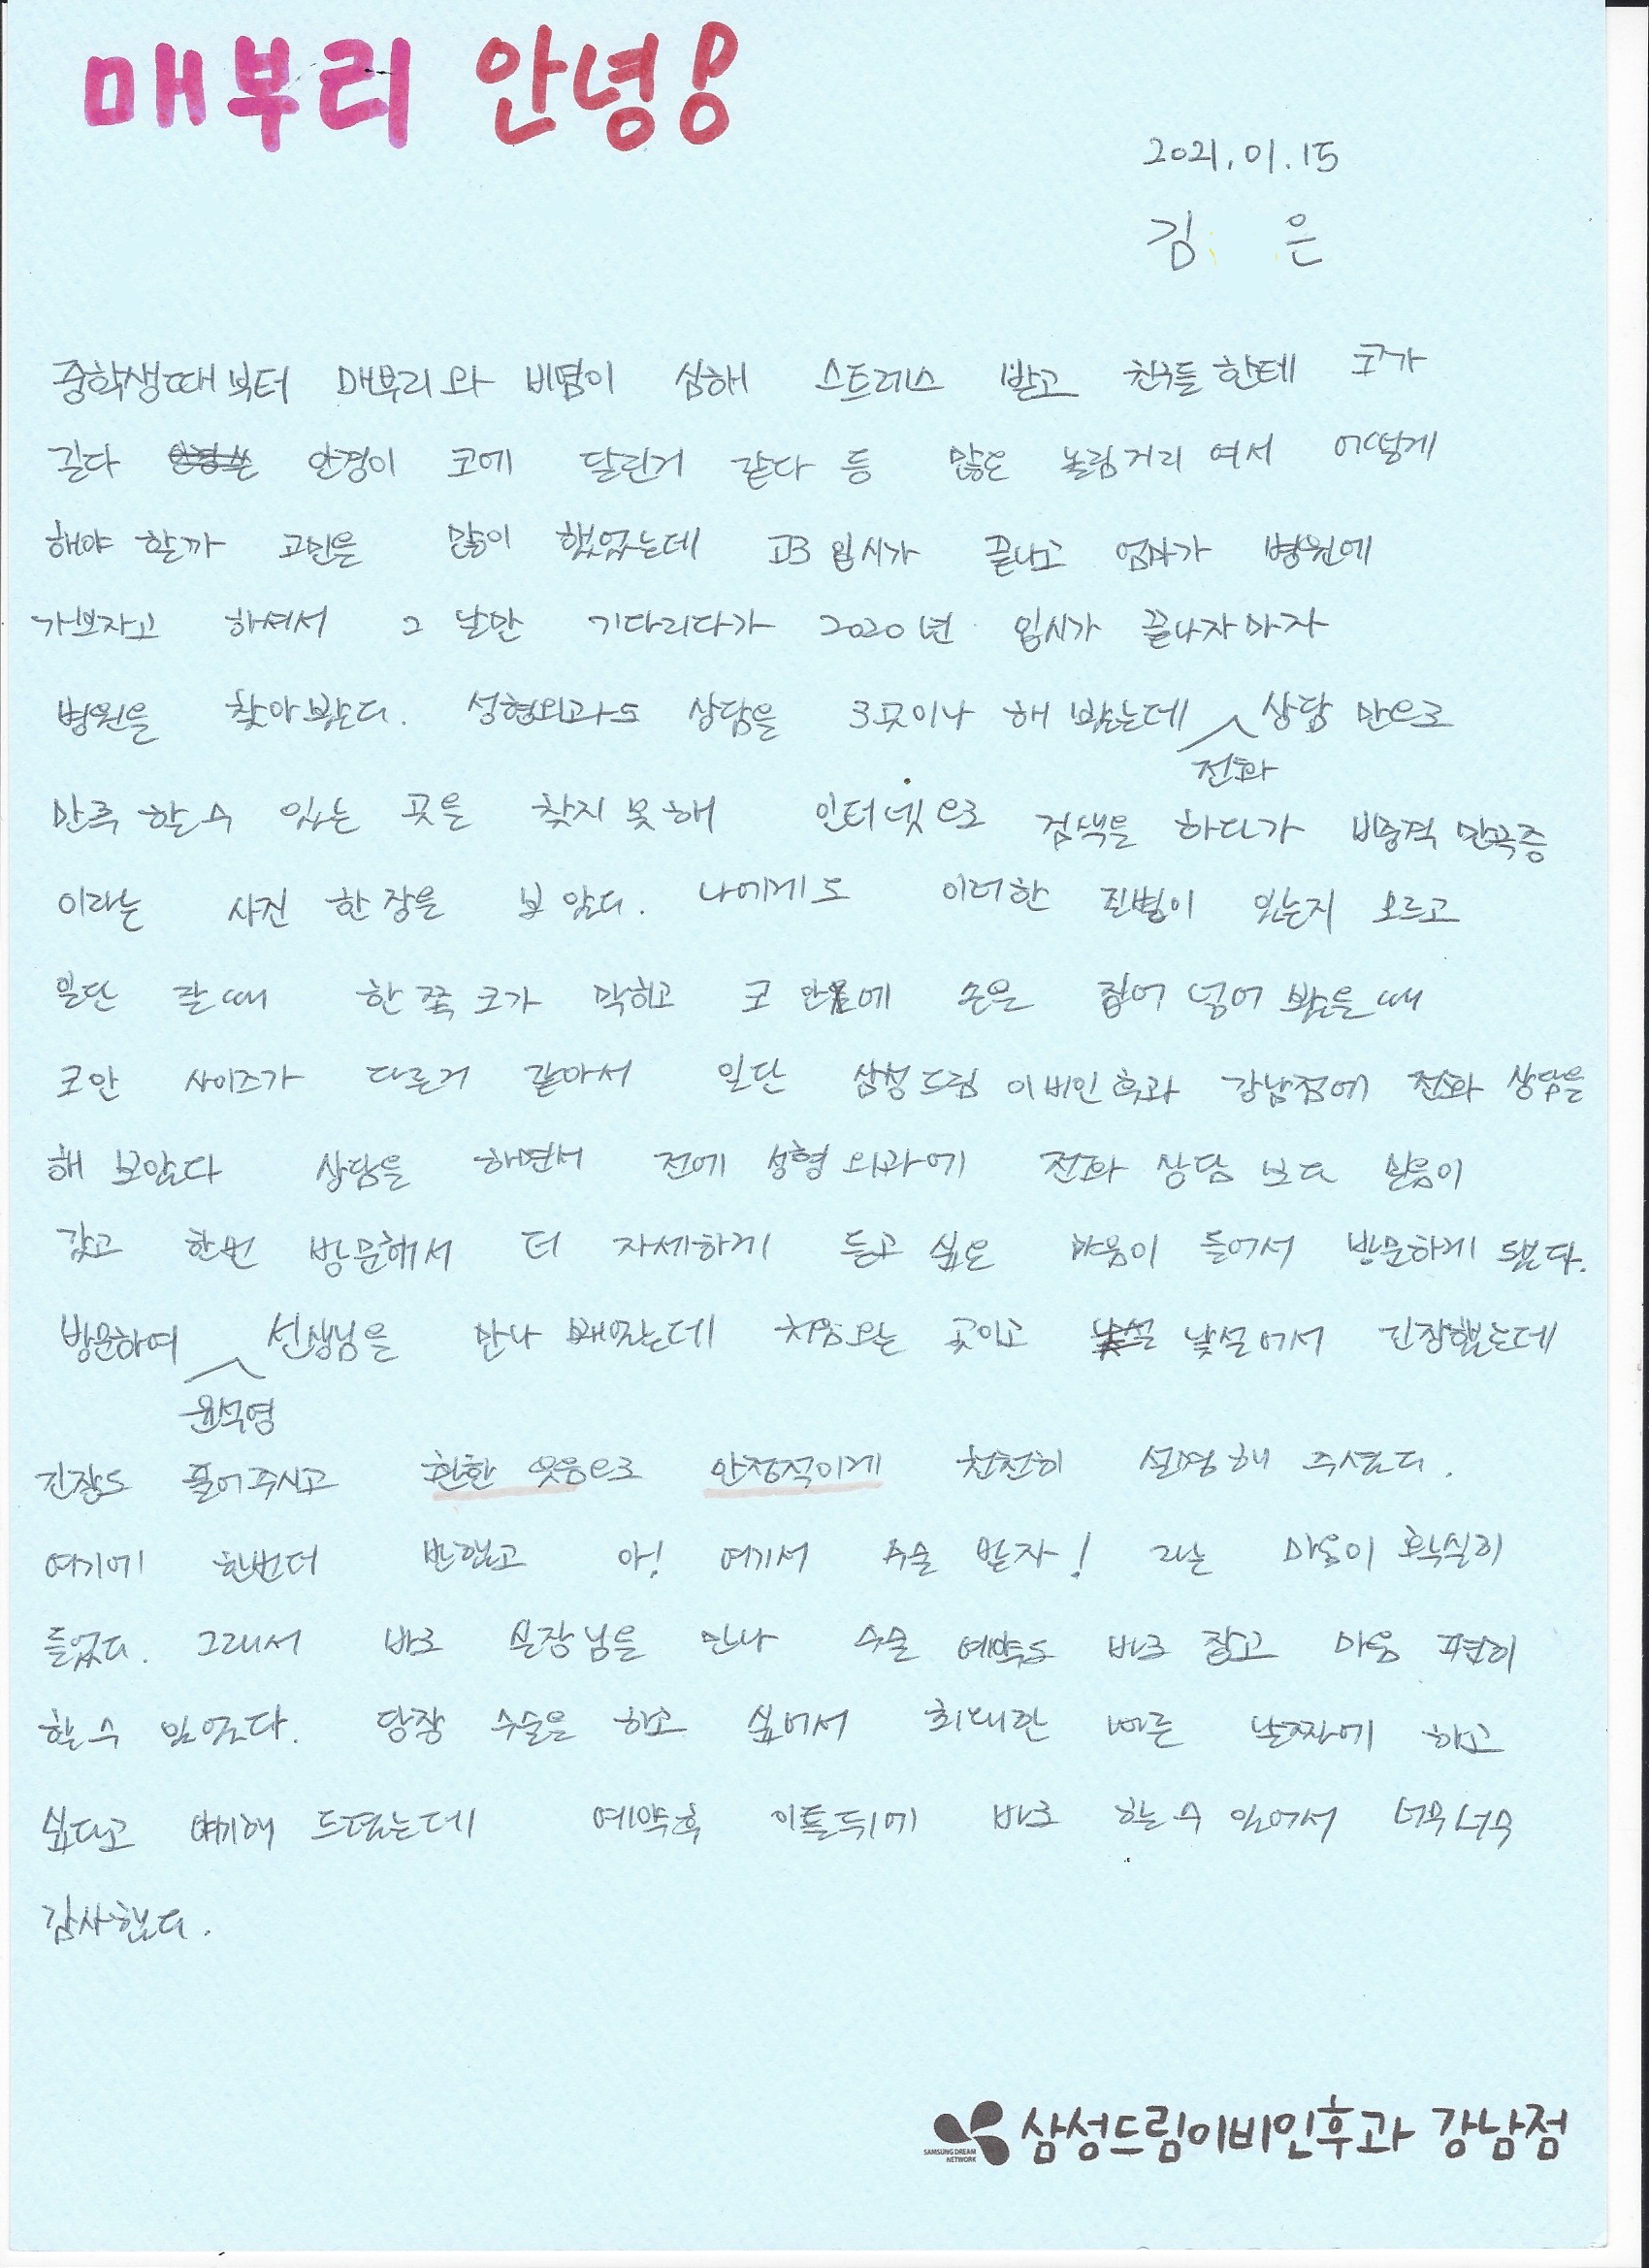 매부리 안녕!
2021.01.15
김 은
중학생때부터 매부리와 비염이 심해 스트레스 받고 친구들한테 코가
길다 안경이 코에 달린거 같다 등 많은 놀림거리 여서 어떻게
해야 할까 고민을 많이 했었는데 고3 입시가 끝나고 엄마가 병원에
가보자고 하셔서 그 날만 기다리다가 2020년 입시가 끝나자마자
병원을 찾아봤다. 성형외과도 상담을 3곳이나 해 봤는데 상담 만으로
전화
만족 할 수 있는 곳을 찾지 못해 인터넷으로 검색을 하다가 비중격 만곡증
이라는 사진 한장을 보았다. 나에게도 이러한 질병이 있는지 모르고
일단 잘때 한쪽 코가 막히고 코 안에 손을 집어 넣어 봤을때
코안 사이즈가 다른거 같아서 일단 삼성드림 이비인후과 강남점에 전화 상담을
해 보았다 상담을 하면서 전에 성형외과에 전화 상담 보다 믿음이
갔고 한번 방문해서 더 자세하게 듣고 싶은 마음이 들어서 방문하게 됐다.
방문하여 선생님을 만나 뵀었는데 처음오는 곳이고 낯설어서 긴장했는데
윤석영
긴장도 풀어주시고 환한 웃음으로 안정적이게 천천히 설명해 주셨다.
여기에 한번더 반했고 아! 여기서 수술 받자! 라는 마음이 확실히
들었다. 그래서 바로 실장님을 만나 수술 예약도 바로 잡고 마음 편히
할 수 있었다. 당장 수술을 하고 싶어서 최대한 빠른 날짜에 하고
싶다고 얘기해 드렸는데 예약후 이틀뒤에 바로 할 수 있어서 너무너무
감사했다.
SAMSUNG DREAM
NETWORK
삼성드림이비인후과 강남점